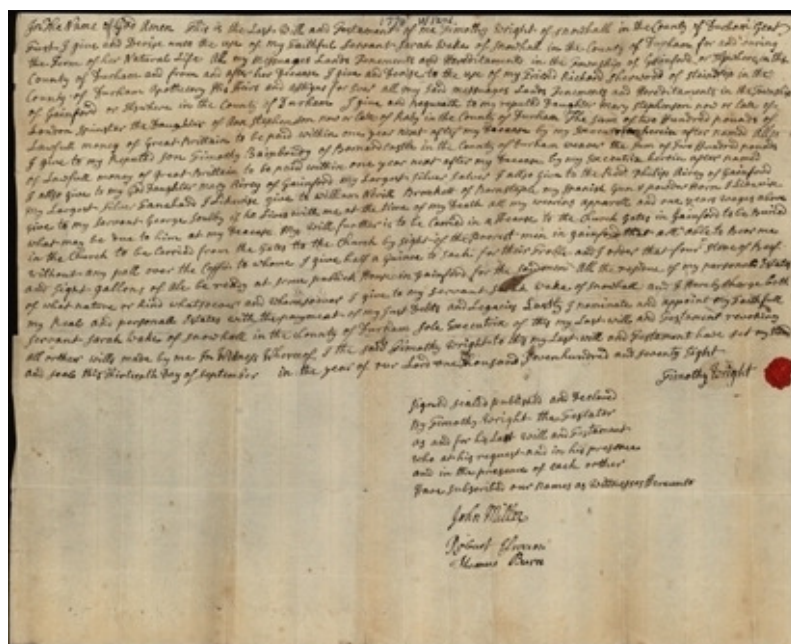 In the Name of God Amen This is the Last Will and Testament of me Timothy Wright of Snowhall in the County of Durham Gent
First I give and Devise unto the use of my Faithful Servant Sarah Wake of Snowhall in the County of Durham for and during
the Term of her Natural Life All my Messuages Lands Tenements and Hereditaments in the Township of Gainford or Elsewhere in the
County of Durham and from and after her Decease I Give and Devise to the use of my Friend Richard Sherwood of Staindrop in the
County of Durham Apothecary His Heirs and Assigns for Ever all my said messuages Lands Tenements and Hereditaments in the Township
of Gainford or Elsewhere in the County of Durham I give and bequeath to my reputed Daughter Mary Stephenson now or Late of
London Spinster the Daughter of Ann Stephenson now or Late of Raby in the County of Durham The sum of two Hundred pounds of
Lawfull money of Great Brittain to be paid within one year next after my Decease by my Executrix herein after named Also
I give to my Reputed son Timothy of Barnardcastle in the County of Durham weaver the sum of Five Hundred pounds
of Lawfull money of Great Brittain to be paid within one year next after my Decease by my Executrix herein after named
I also give to my God Daughter Mary Airey of Gainford My Largest Silver Salver I Also Give to the Revd. Philip Airey of Gainford
my Largest Silver Tankard I Likewise give to William Brockett of my Spanish Gun & powder Horn I Likewise
give to my Servant George Soulby if he Lives with me at the Time of my Death all my wearing apparell and one years wages above
what may be due to him at my Decease My Will further is to be Carried in a Hearse to the Church Gates in Gainford to be Buried
in the Church to be Carried from the Gates to the Church by Eight of the Poorest men in Gainford that are able to Bear me
without any pall over the Coffin to whom I give half a Guinea to Each for their Trouble and I order that four Stone of Beef
and Eight gallons of Ale be ready at some publick House in Gainford for the said men All the residue of my personal Estates
of what nature or kind whatsoever and whomsoever I give to my Servant Sarah Wake of Snowhall and I Hereby Charge both
my Real and personall Estates with the payment of my Just Debts and Legacies Lastly I nominate and appoint my Faithfull
Servant Sarah Wake of Snowhall in the County of Durham Sole Executrix of this my Last will and Testament revoking
all orther wills made by me In Witness Whereof I the said Timothy Wright to this my Last will and Testament have set my Hand
and seale this thirteenth Day of September in the year of our Lord one Thousand Sevenhundred and seventy Eight
Timothy Wright
Signed sealed published and Declared
by Timothy Wright the Testator
as and for his Last Will and Testament
who at his request and in his presence
and in the presence of each orther
have subscribed our names as Witnesses Hereunto
John
Robert
Thomas Burn